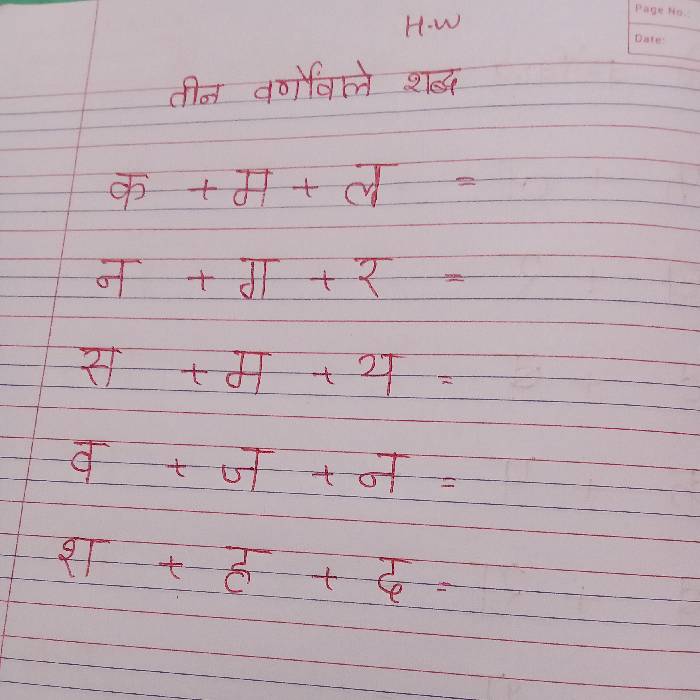 Page No.:
Date:
H.W
तीन वर्णोवाले शब्द
क + म + ल =
न + ग + र =
स + म + य =
व + ज + न =
श + ह + द =